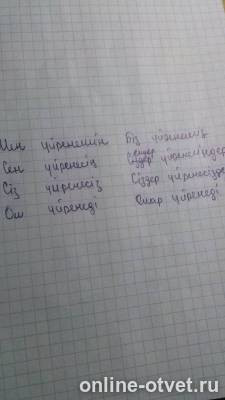 Мен үйренемін Біз үйренеміз
Сен үйренесің сендер үйренесіңдер
Сіз үйренесіз Сіздер үйренесізде
Ол үйренеді Олар үйренеді
online-otvet.ru